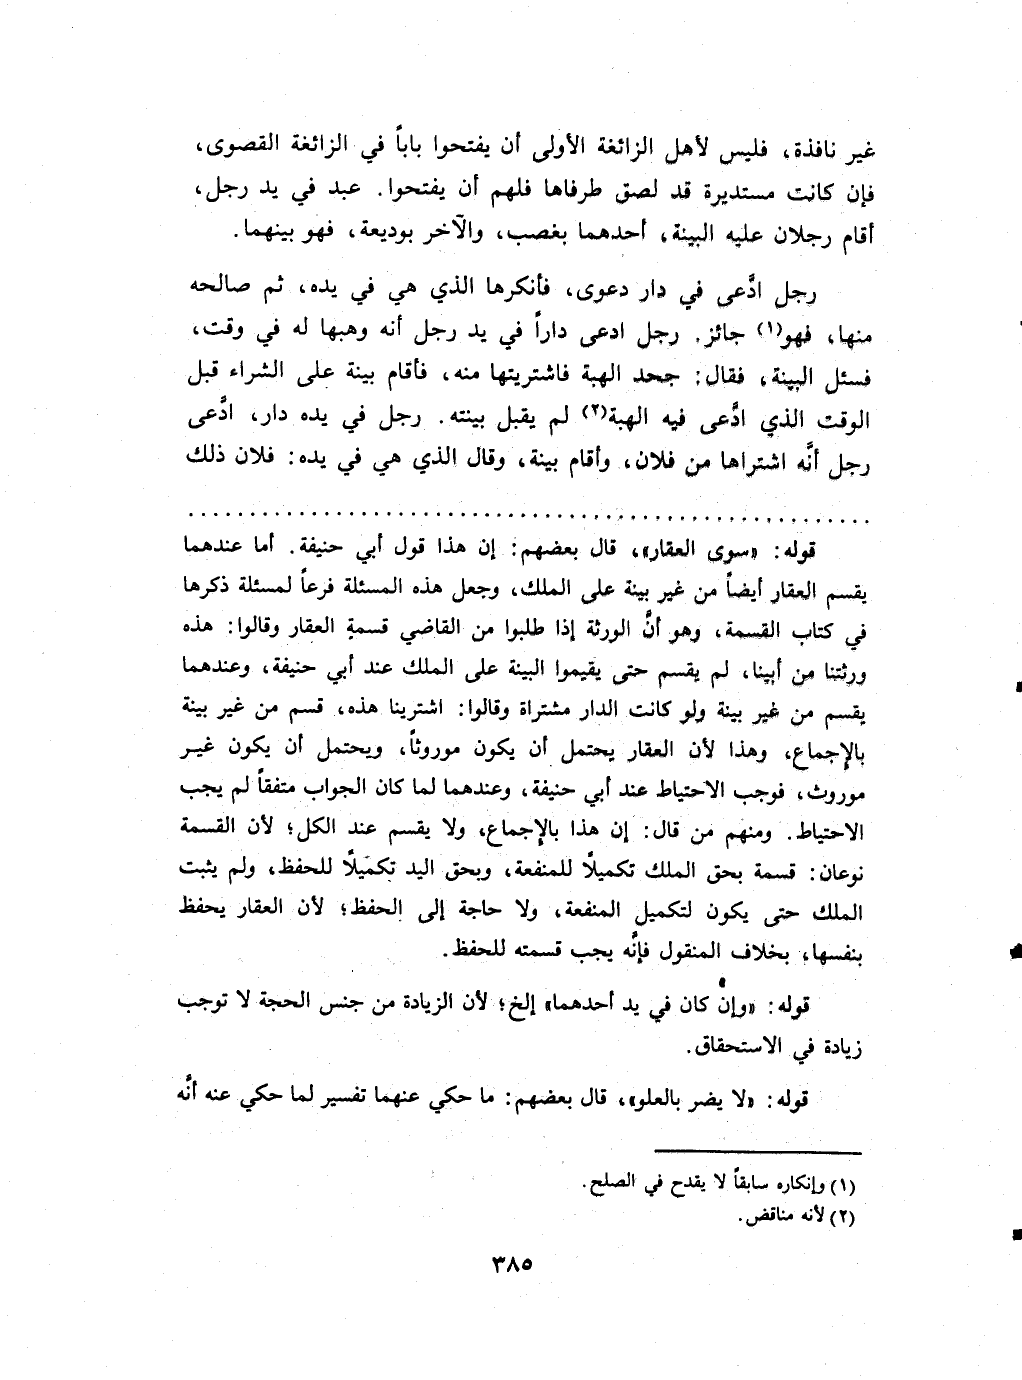 غير نافذة، فليس لأهل الزائغة الأولى أن يفتحوا باباً في الزائغة القصوى،
فإن كانت مستديرة قد لصق طرفاها فلهم أن يفتحوا. عبد في يد رجل،
أقام رجلان عليه البينة، أحدهما بغصب، والآخر بوديعة، فهو بينهما.
رجل ادَّعى في دار دعوى، فأنكرها الذي هي في يده، ثم صالحه
منها، فهو(١) جائز. رجل ادعى داراً في يد رجل أنه وهبها له في وقت،
فسئل البينة، فقال: جحد الهبة فاشتريتها منه، فأقام بينة على الشراء قبل
الوقت الذي ادَّعى فيه الهبة(٢) لم يقبل بينته. رجل في يده دار، ادَّعى
رجل أنَّه اشتراها من فلان، وأقام بينة، وقال الذي هي في يده: فلان ذلك
قوله: «سوى العقار»، قال بعضهم: إن هذا قول أبي حنيفة. أما عندهما
يقسم العقار أيضاً من غير بينة على الملك، وجعل هذه المسئلة فرعاً لمسئلة ذكرها
في كتاب القسمة، وهو أنَّ الورثة إذا طلبوا من القاضي قسمة العقار وقالوا: هذه
ورثتنا من أبينا، لم يقسم حتى يقيموا البينة على الملك عند أبي حنيفة، وعندهما
يقسم من غير بينة ولو كانت الدار مشتراة وقالوا: اشترينا هذه، قسم من غير بينة
بالإجماع، وهذا لأن العقار يحتمل أن يكون موروثاً، ويحتمل أن يكون غير
موروث، فوجب الاحتياط عند أبي حنيفة، وعندهما لما كان الجواب متفقاً لم يجب
الاحتياط. ومنهم من قال: إن هذا بالإجماع، ولا يقسم عند الكل؛ لأن القسمة
نوعان: قسمة بحق الملك تكميلًا للمنفعة، وبحق اليد تكميلًا للحفظ، ولم يثبت
الملك حتى يكون لتكميل المنفعة، ولا حاجة إلى الحفظ؛ لأن العقار يحفظ
بنفسها، بخلاف المنقول فإنَّه يجب قسمته للحفظ.
قوله: «وإن كان في يد أحدهما» إلخ؛ لأن الزيادة من جنس الحجة لا توجب
زيادة في الاستحقاق.
قوله: «لا يضر بالعلو»، قال بعضهم: ما حكي عنهما تفسير لما حكي عنه أنَّه
(١) وإنكاره سابقاً لا يقدح في الصلح.
(٢) لأنه مناقض.
٣٨٥